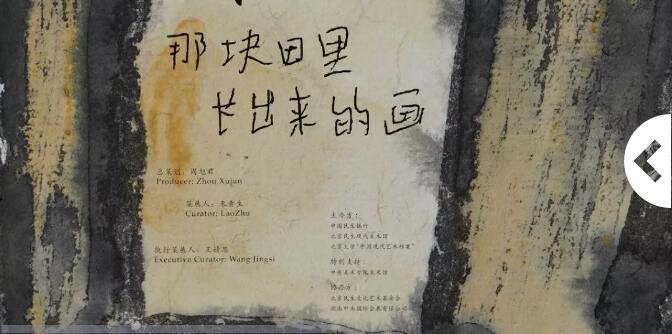 那块田里
长出来的画
总策划：周旭君
Producer: Zhou Xujun
策展人：朱青生
Curator: LaoZhu
执行策展人：王婧思
Executive Curator: Wang Jingsi
主办方：
中国民生银行
北京民生现代美术馆
北京大学“中国现代艺术档案”
特别支持：
中央美术学院美术馆
协办方：
北京民生文化艺术基金会
湖南中南国际会展有限公司